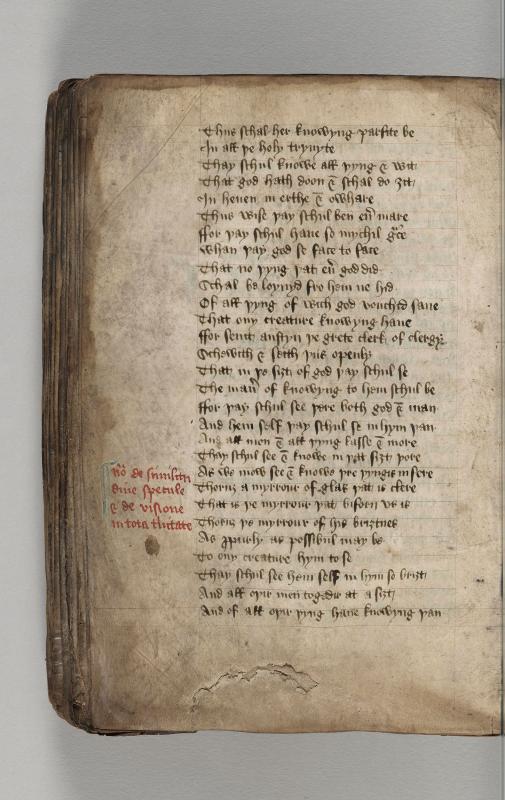 Thus schal her knowyng parfite be
In all þe holy trynyte
Thay schul knowe all þyng & wit
That god hath doon & schal do ȝit
In heuen in erthe & owhare
Thus wise þay schul ben euer mare
ffor þay schul haue so mychil grace
Whan þay god se face to face
That no þyng þat euer god did
Schal be loynyd fro hem ne hid
Of all þyng of wich god vouchid saue
That ony creature knowyng haue
ffor seint austyn þe grete clerk of clergy
Schewith & seith þus openly
That in þe siȝt of god þay schul se
The maner of knowyng to hem schul be
ffor þay schul see þere both god & man
And hem self þay schul se in hym þan
And all men & all þyng lasse & more
Thay schul see & knowe in þat siȝt þore
As we mow see & knowe þre þyngis in fere
Thoruȝ a myrrour of glas þat is clere
That is þe myrrour þat biforn vs is
Thoruȝ þe myrrour of his briȝtnes
As purly as possibul may be
To ony creature hym to se
Thay schul see hem self in hym so briȝt
And all oþir men togedir at a siȝt
And of all oþir þyng haue knowyng þan
No de similitudine specule
& de visione
in tota trinitate